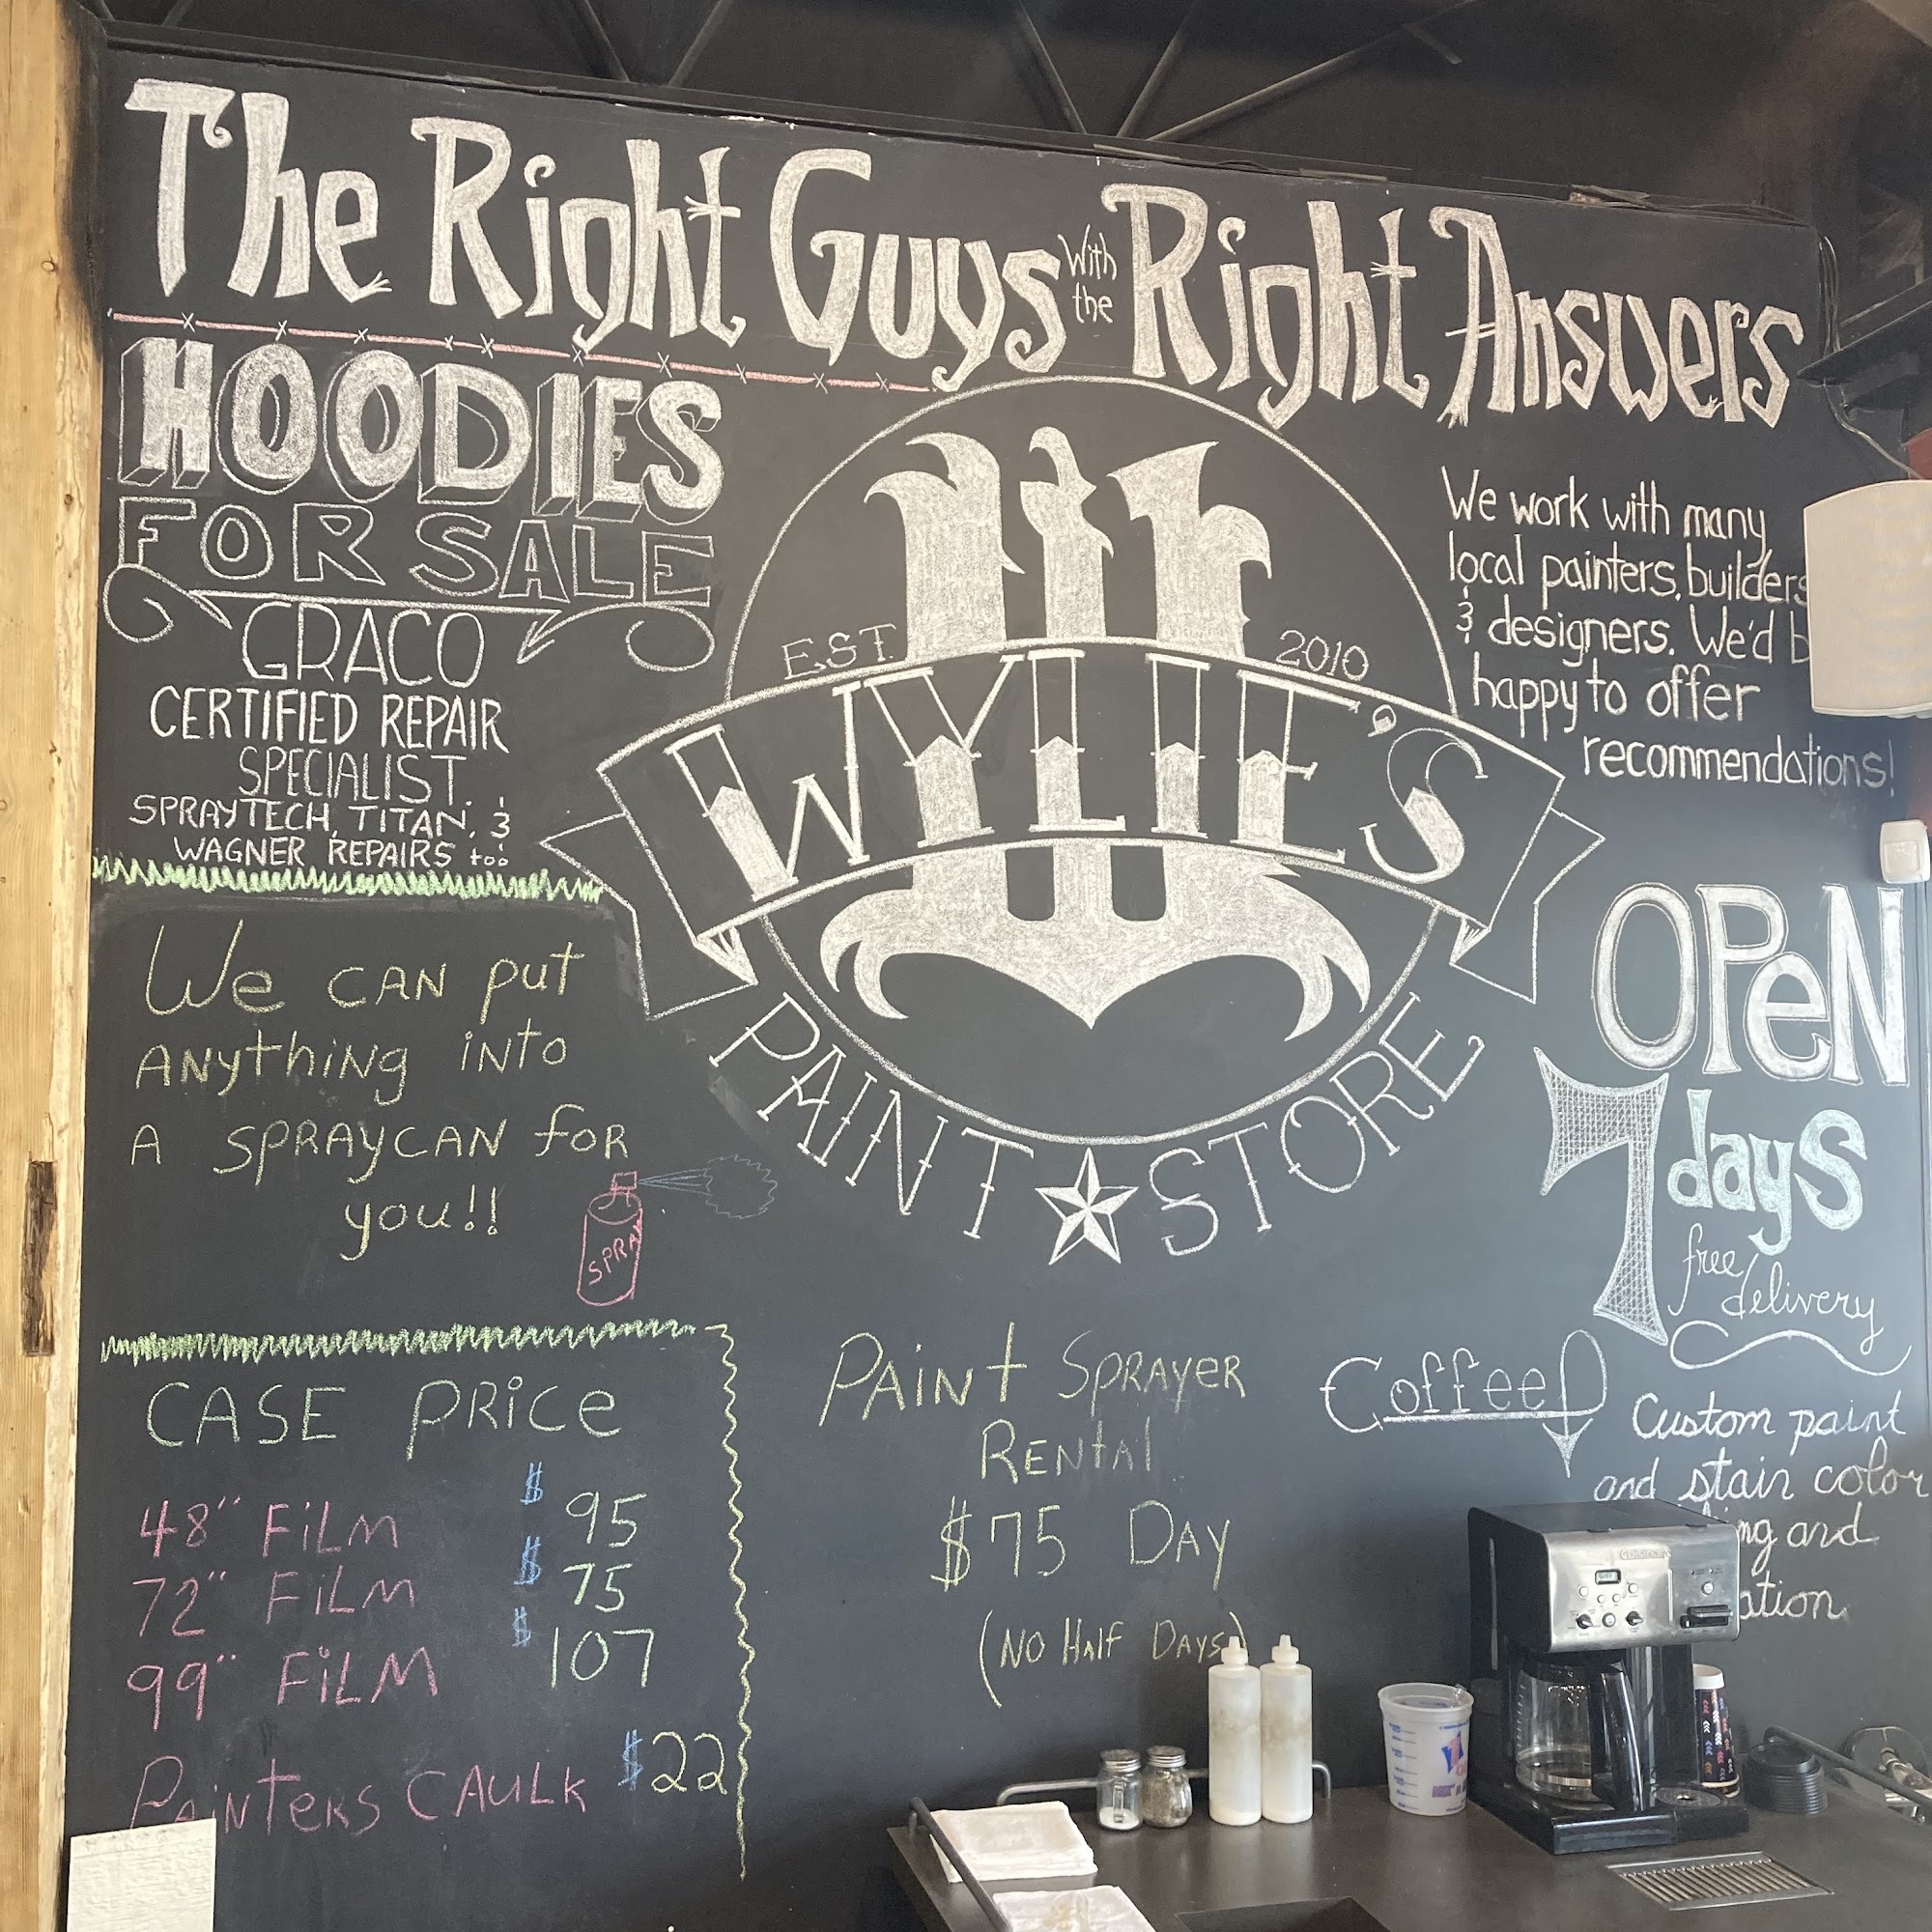 The Right Guys With the Right Answers
HOODIES
FOR SALE
GRACO
CERTIFIED REPAIR
SPECIALIST.
SPRAYTECH, TITAN, &
WAGNER REPAIRS too
We CAN put
ANythiNg iNto
A SPRAYCAN foR
you!!
SPRAY
CASE PRiCe
48" FiLM $95
72" FiLM $75
99" FiLM $107
PAiNteRS CAULK $22
EST. 2010
WYLIE'S
PAINT STORE
PAiNt SPRAYER
RENtAl
$75 DAY
(NO HAlf DAYS)
We work with many
local painters, builders
& designers. We'd b
happy to offer
recommendations!
OPeN
7 days
free delivery
Coffee
Custom paint
and stain color
ng and
ation